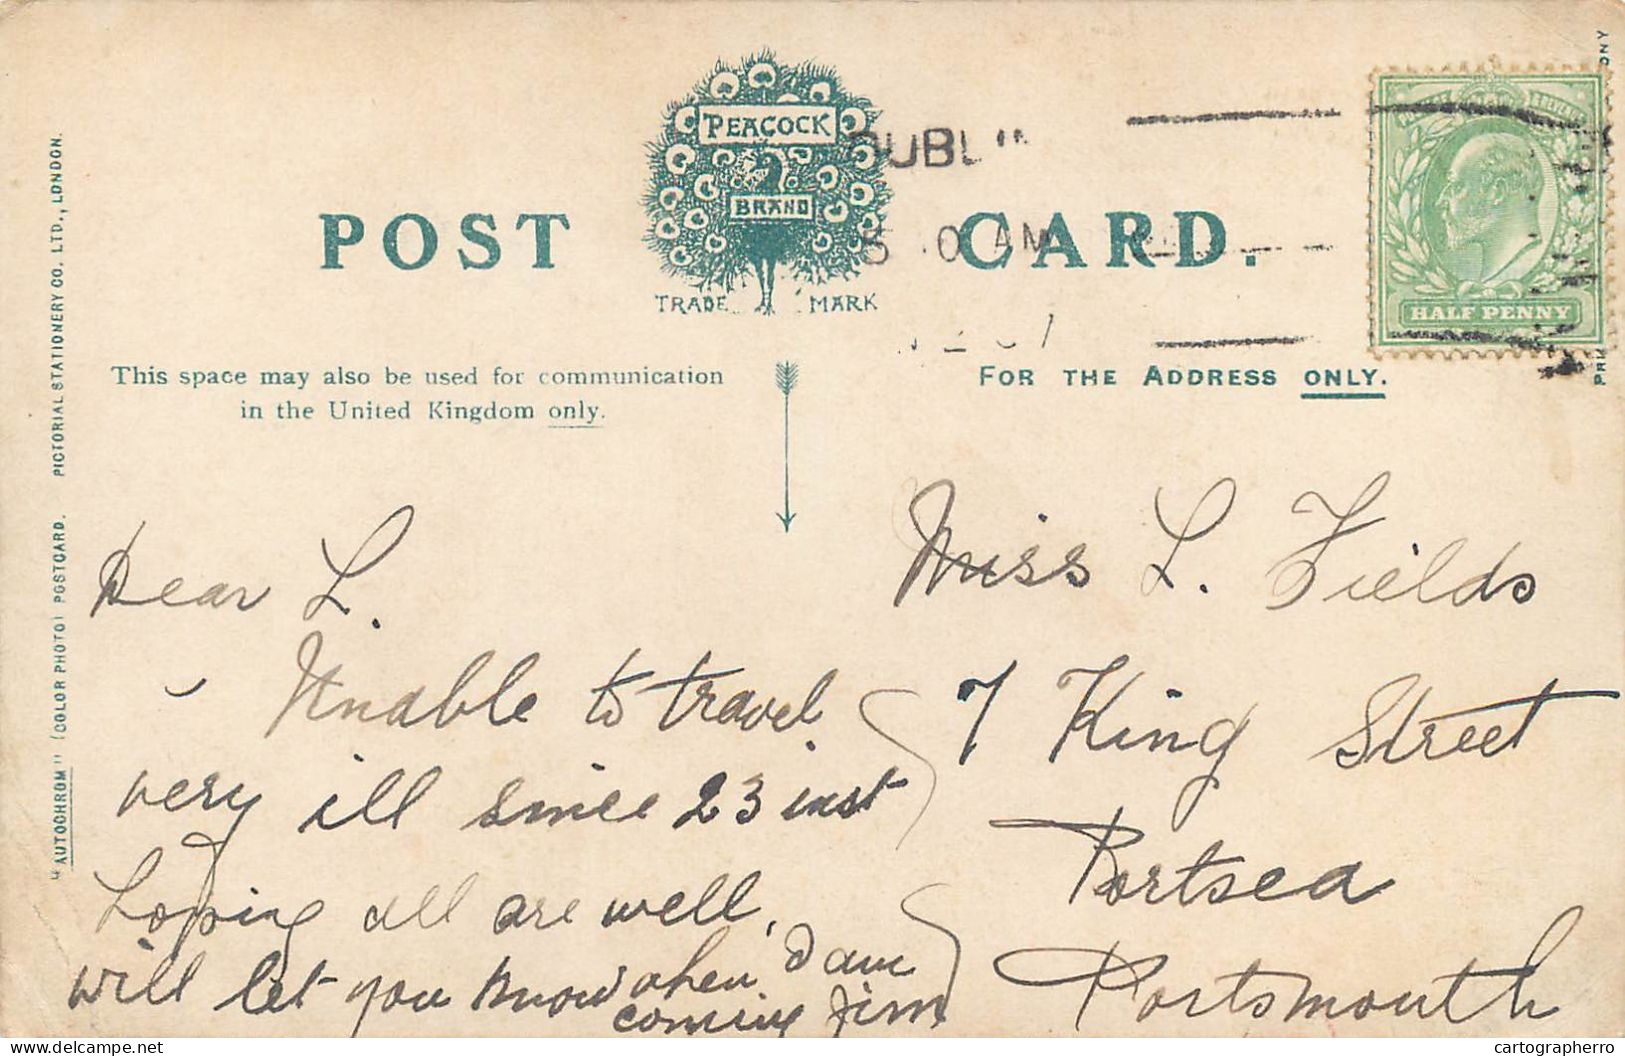 POST CARD.
PEACOCK
BRAND
TRADE MARK
DUBLIN
AM
HALF PENNY
This space may also be used for communication
in the United Kingdom only.
FOR THE ADDRESS ONLY.
"AUTOCHROM" (COLOR PHOTO) POSTCARD. PICTORIAL STATIONERY CO., LTD., LONDON.
Dear L.
Unable to travel
very ill since 23 inst
Hoping all are well,
will let you know when I am
coming Jim
Miss L. Fields
7 King Street
Portsea
Portsmouth
cartographerro